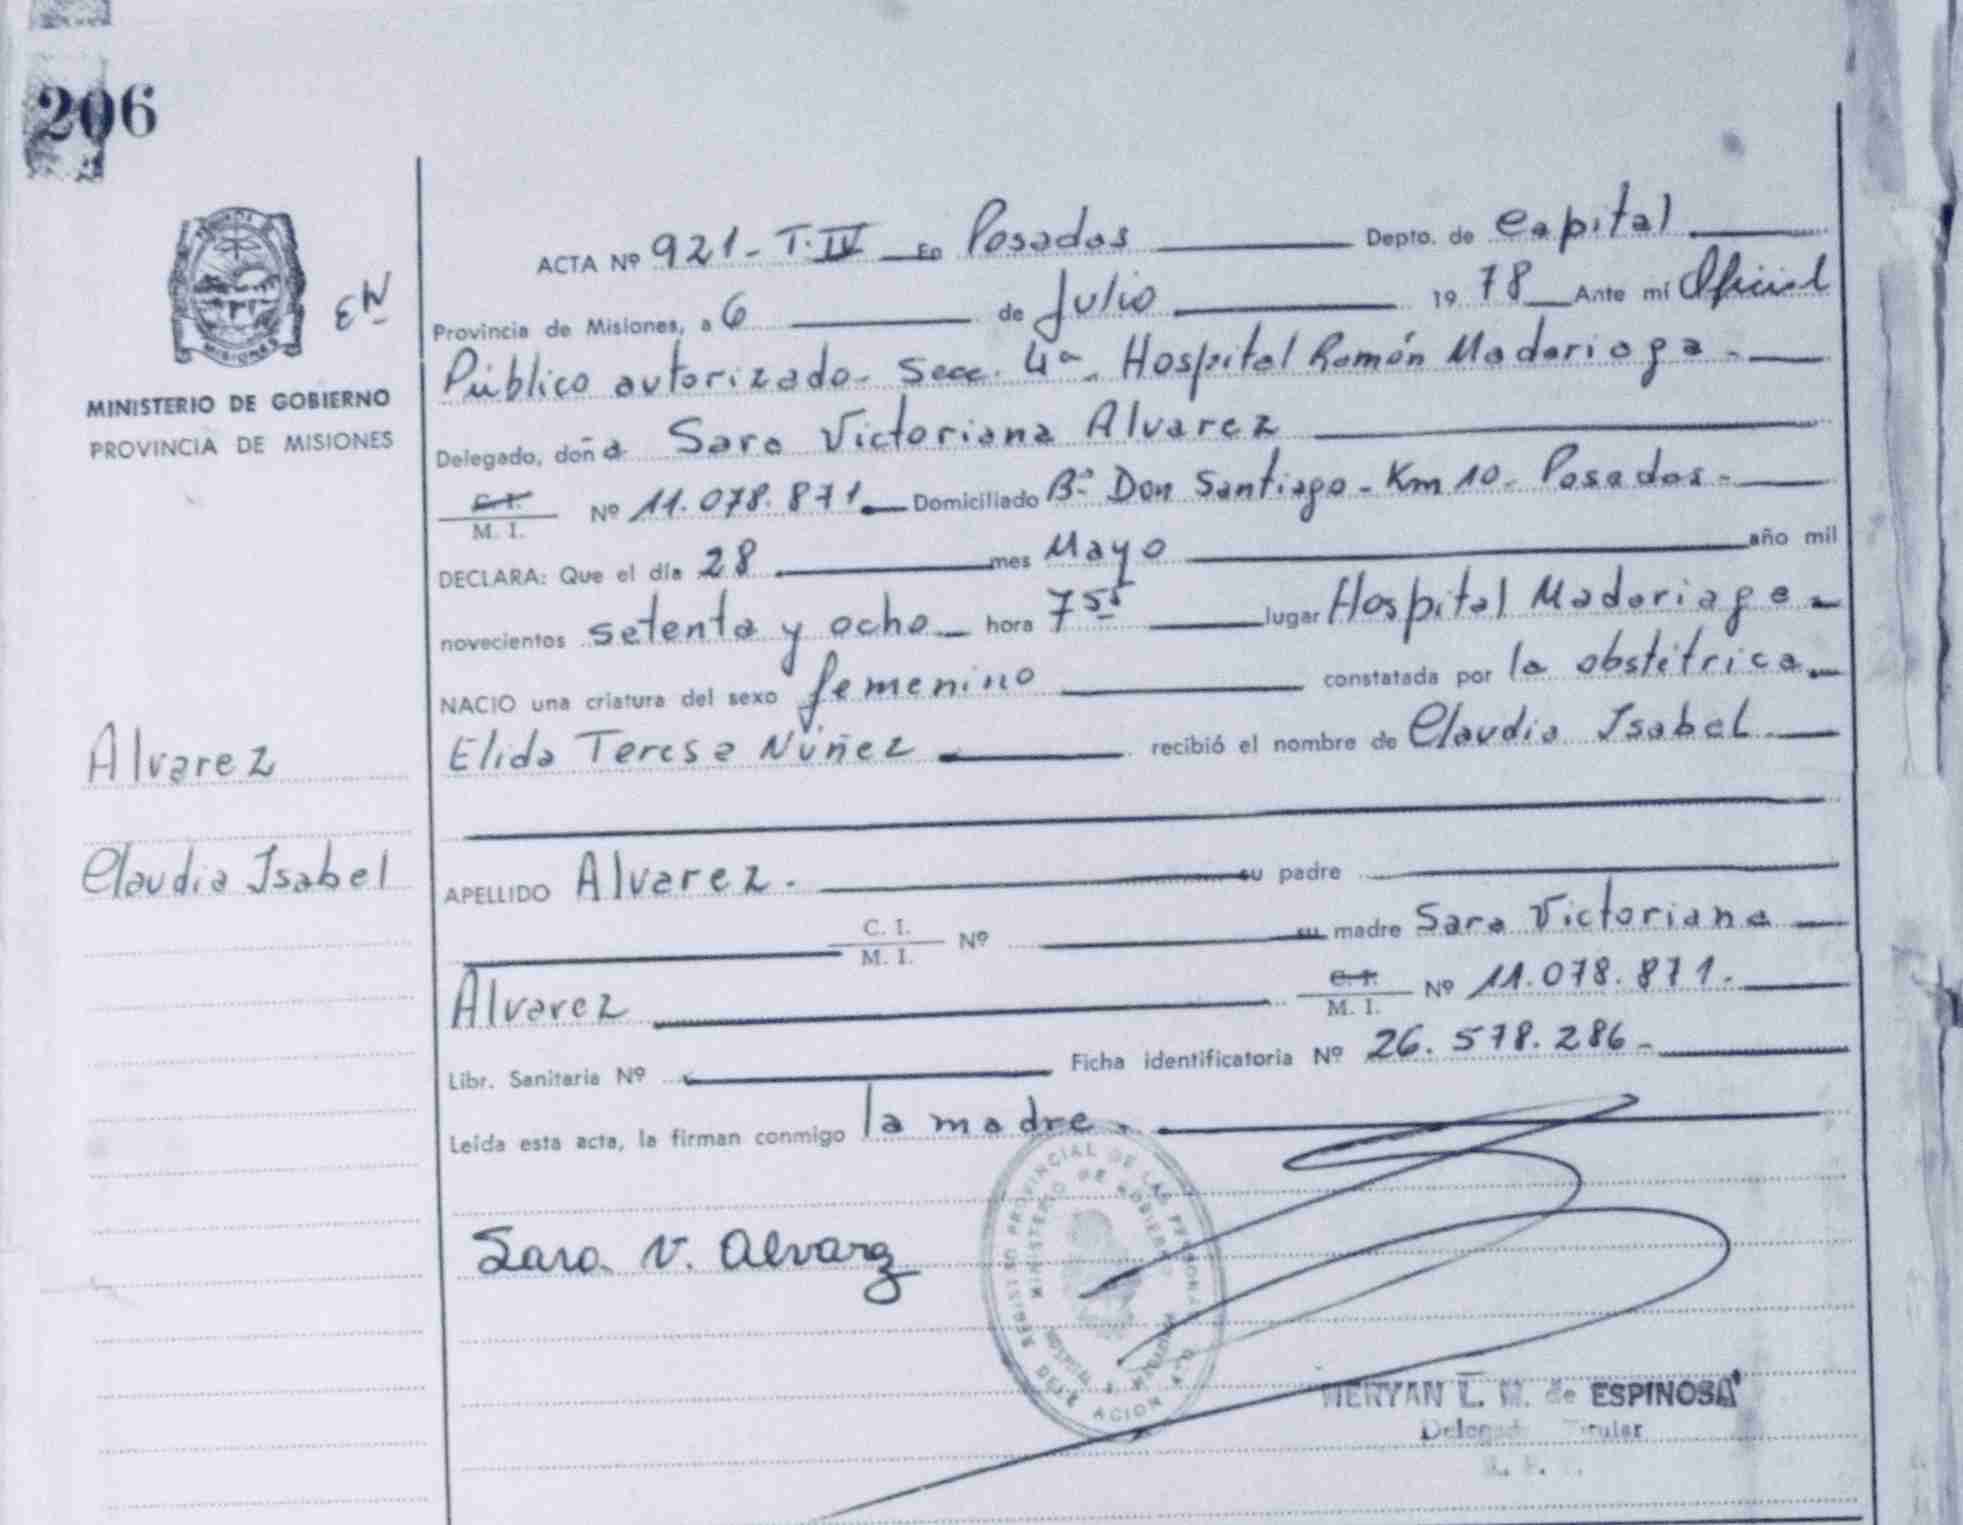 206
MINISTERIO DE GOBIERNO
PROVINCIA DE MISIONES
MISIONES
EN
ACTA Nº 921 - T. IV En Posadas Depto. de Capital
Provincia de Misiones, a 6 de Julio 1978 Ante mí Oficial
Público autorizado - Secc. 4ª - Hospital Ramón Madariaga -
Delegado, doña Sara Victoriana Alvarez
C. I.
M. I. Nº 11.078.871 Domiciliado Bº Don Santiago - Km 10 - Posadas -
DECLARA: Que el día 28 mes Mayo año mil
novecientos setenta y ocho hora 7 55 lugar Hospital Madariaga -
NACIO una criatura del sexo femenino constatada por la obstétrica
Alvarez
Elida Teresa Núñez recibió el nombre de Claudia Isabel
Claudia Isabel
APELLIDO Alvarez. su padre
C. I.
M. I. Nº su madre Sara Victoriana
Alvarez C. I.
M. I. Nº 11.078.871.
Libr. Sanitaria Nº Ficha identificatoria Nº 26.578.286 -
Leída esta acta, la firman conmigo la madre.
Sara V. Alvarez
REGISTRO PROVINCIAL DE LAS PERSONAS
MINISTERIO DE GOBIERNO
HOSPITAL R. MADARIAGA
DELEGACION
L. M. de ESPINOSA
Titular